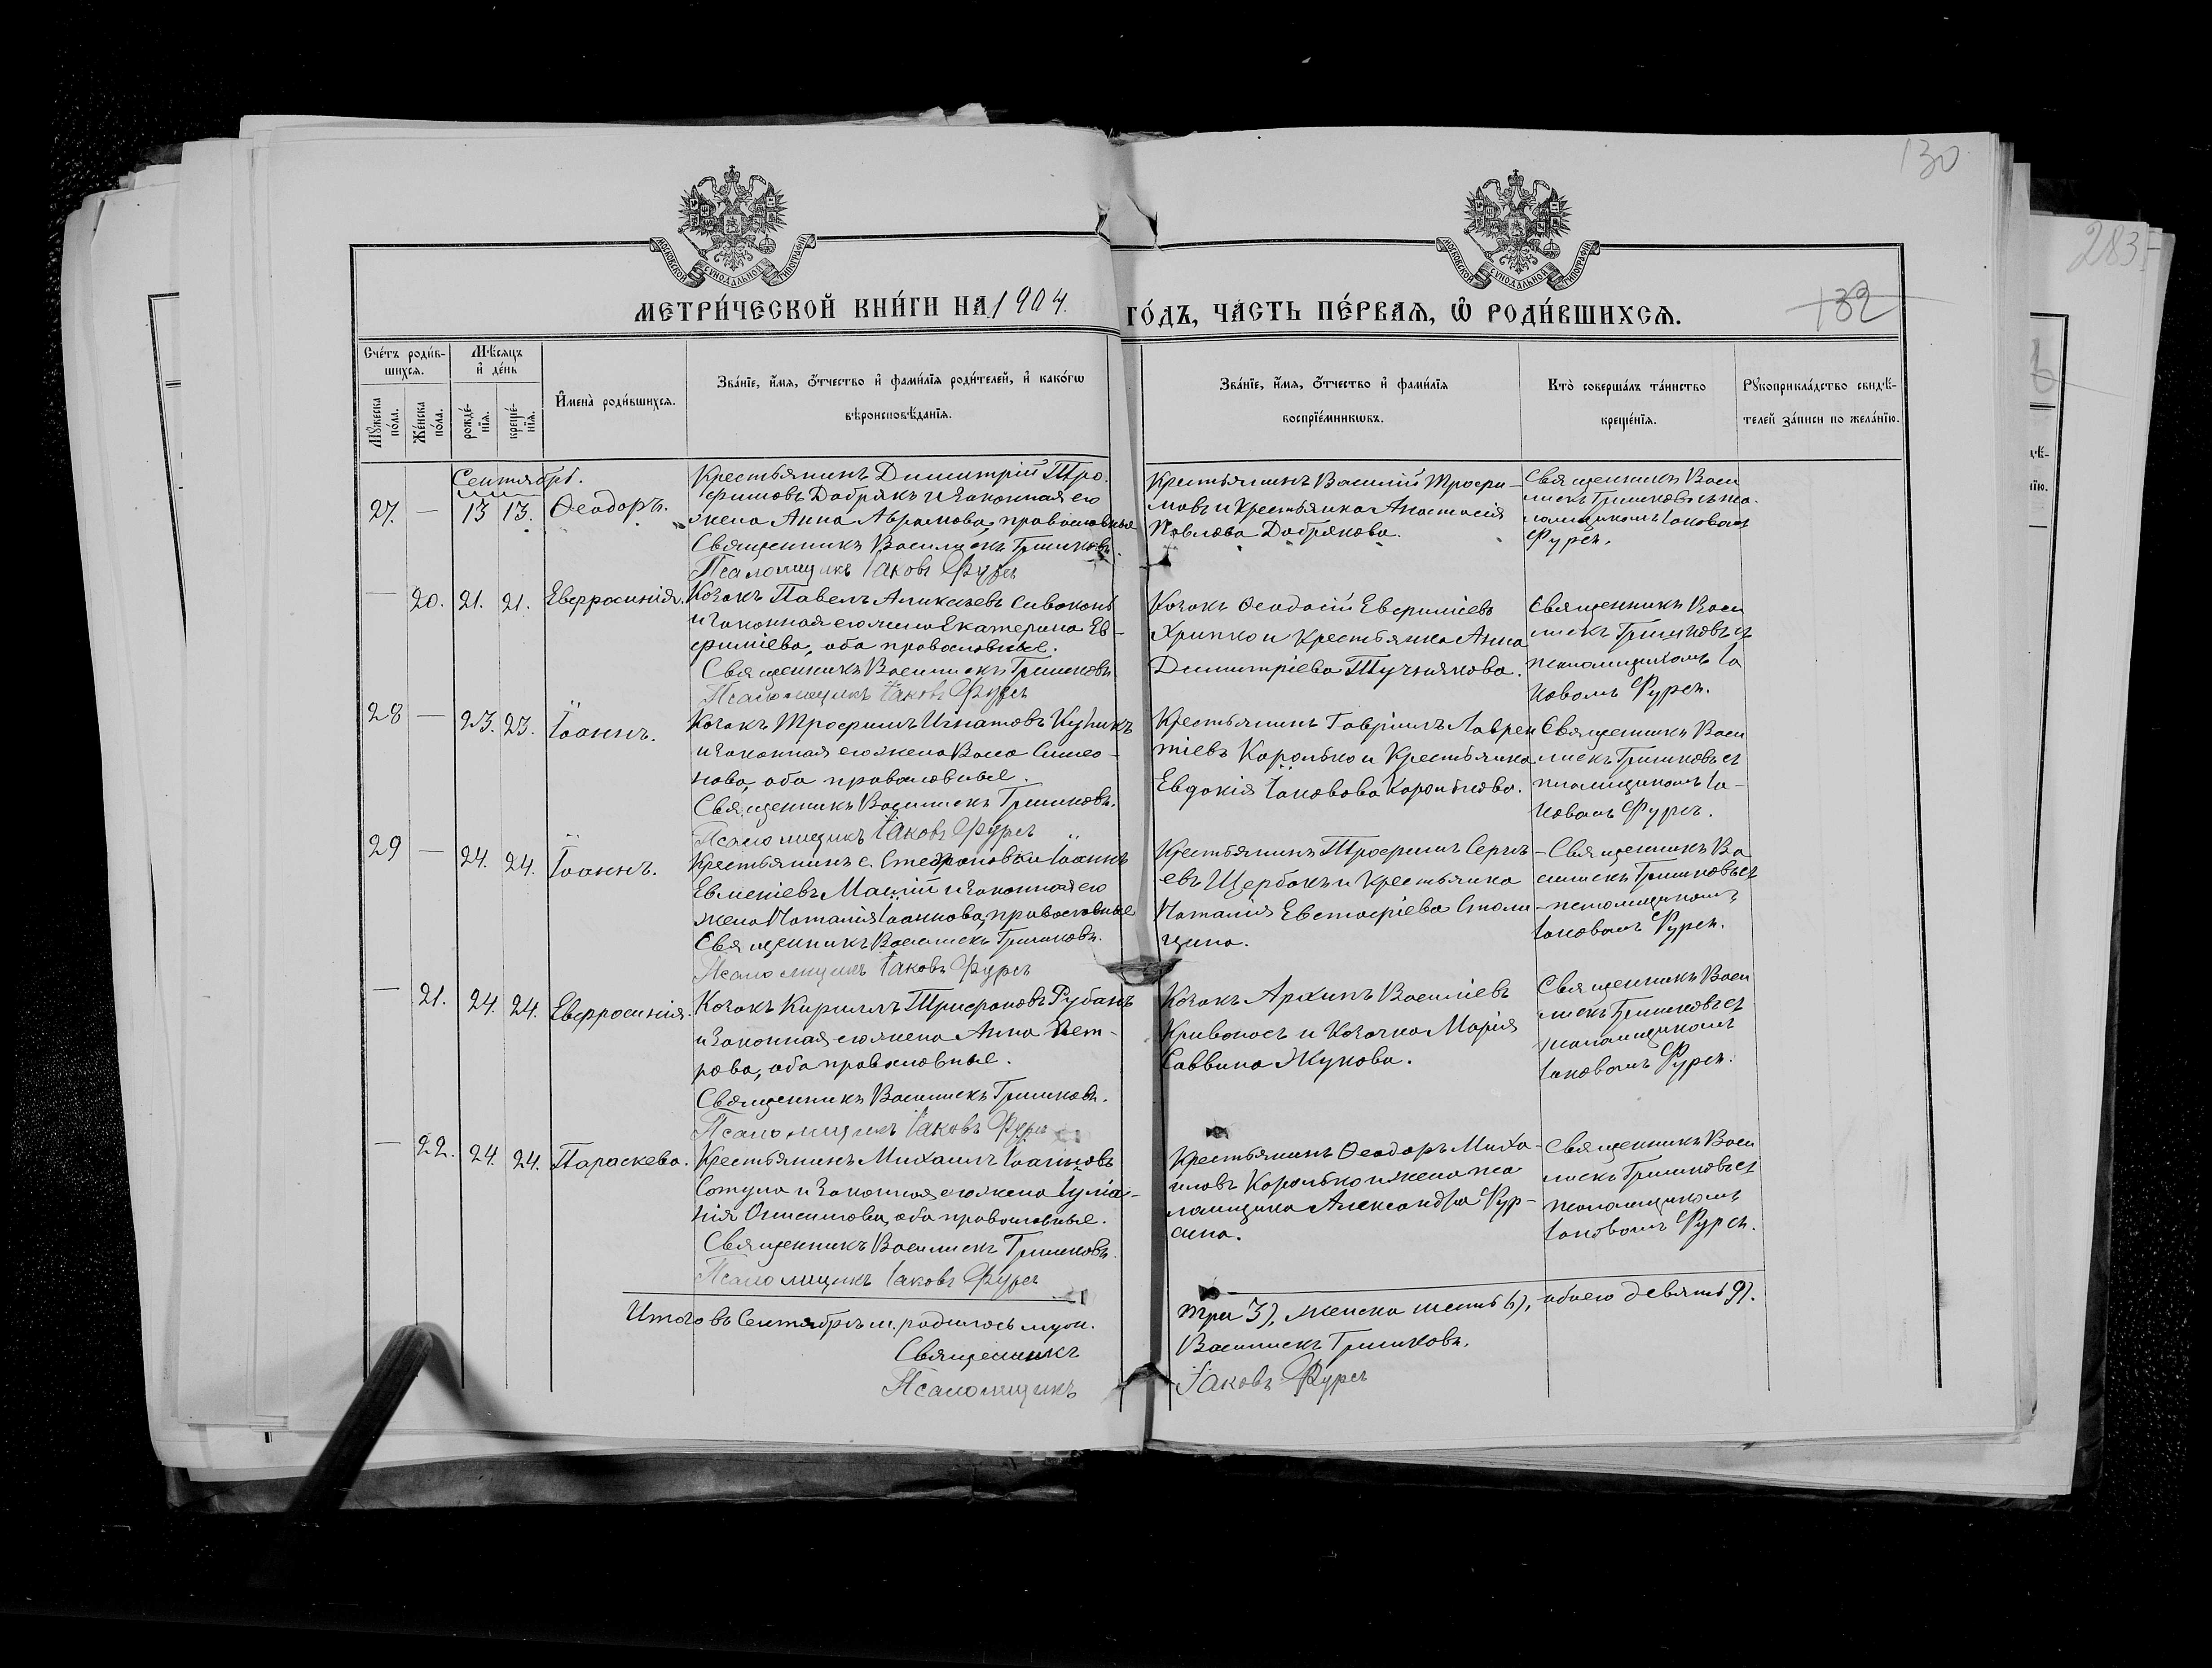 130
283
МОСКОВСКОЙ СѴНОДАЛЬНОЙ ТИПОГРАФІИ
МОСКОВСКОЙ СѴНОДАЛЬНОЙ ТИПОГРАФІИ
МЕТРИ́ЧЕСКОЙ КНИ́ГИ НА 1904. ГО́ДЪ, ЧА́СТЬ ПЕ́РВАѦ, Ѽ РОДИ́ВШИХСѦ.
132
Сче́тъ роди́в-
шихсѧ.
Мѣ́сяцъ
и҆ де́нь
Мꙋ́жеска по́ла.
Же́нска по́ла.
рожде́-
нїѧ.
креще́-
нїѧ.
И҆мена̀ роди́вшихсѧ.
Зва́нїе, и҆́мѧ, ѻ҆́тчество и҆ фами́лїѧ роди́телей, и҆ како́гѡ
вѣроисповѣ́данїѧ.
Зва́нїе, и҆́мѧ, ѻ҆́тчество и҆ фами́лїѧ
воспрїе́мникѡвъ.
Кто̀ соверша́лъ та́инство
креще́нїѧ.
Рꙋкоприкла́дство свидѣ́-
телей за́писи по жела́нїю.
Сентябрь.
27. — 13 13. Ѳеодоръ.
Крестьянинъ Димитрій Тро-
фимовъ Добрякъ и законная его
жена Анна Аврамова, православные
Священникъ Василискъ Гришковъ.
Псаломщикъ Іаковъ Фурсъ
Крестьянинъ Василій Трофи-
мовъ и крестьянка Анастасія
Павлова Добрякова.
Священникъ Васи
лискъ Гришковъ съ пса-
ломщикомъ Іаковомъ
Фурсъ.
— 20. 21. 21. Евфросинія.
Козакъ Павелъ Алексѣевъ Сивоконь
и законная его жена Екатерина Ев-
фиміева, оба православные.
Священникъ Василискъ Гришковъ.
Псаломщикъ Іаковъ Фурсъ
Козакъ Ѳеодосій Евфиміевъ
Хрипко и крестьянка Анна
Димитріева Тучнякова.
Священникъ Васи
лискъ Гришковъ съ
псаломщикомъ Іа
ковомъ Фурсъ.
28 — 23. 23. Іоаннъ.
Козакъ Трофимъ Игнатовъ Куликъ
и законная его жена Васса Симео-
нова, оба православные.
Священникъ Василискъ Гришковъ.
Псаломщикъ Іаковъ Фурсъ
Крестьянинъ Гавріилъ Лаврен
тіевъ Королько и крестьянка
Евдокія Іаковова Королькова.
Священникъ Васи
лискъ Гришковъ съ
псаломщикомъ Іа-
ковомъ Фурсъ.
29 — 24. 24. Іоаннъ.
Крестьянинъ с. Стефановки Іоаннъ
Евменіевъ Мацій и законная его
жена Наталія Іоаннова, православные
Священникъ Василискъ Гришковъ.
Псаломщикъ Іаковъ Фурсъ
Крестьянинъ Трофимъ Сергѣ-
евъ Щербакъ и крестьянка
Наталія Евстафіева
Священникъ Ва
силискъ Гришковъ съ
псаломщикомъ
Іаковомъ Фурсъ.
— 21. 24. 24. Евфросинія.
Козакъ Кириллъ Трифоновъ Рубанъ
и законная его жена Анна Пет-
рова, оба православные.
Священникъ Василискъ Гришковъ.
Псаломщикъ Іаковъ Фурсъ
Козакъ Архипъ Василіевъ
Кривоносъ и козачка Марія
Саввина Жукова.
Священникъ Васи
лискъ Гришковъ съ
псаломщикомъ
Іаковомъ Фурсъ.
— 22. 24. 24. Параскева.
Крестьянинъ Михаилъ Іоанновъ
Сотула и законная его жена Іуліа-
нія Онисимова, оба православные.
Священникъ Василискъ Гришковъ.
Псаломщикъ Іаковъ Фурсъ
Крестьянинъ Ѳеодоръ Миха-
иловъ Королько и жена пса
ломщика Александра Фур-
сина.
Священникъ Васи
лискъ Гришковъ съ
псаломщикомъ
Іаковомъ Фурсъ.
Итого въ Сентябрѣ м. родилось муж. три 3), женска шесть 6), обоего девять 9).
Священникъ Василискъ Гришковъ.
Псаломщикъ Іаковъ Фурсъ